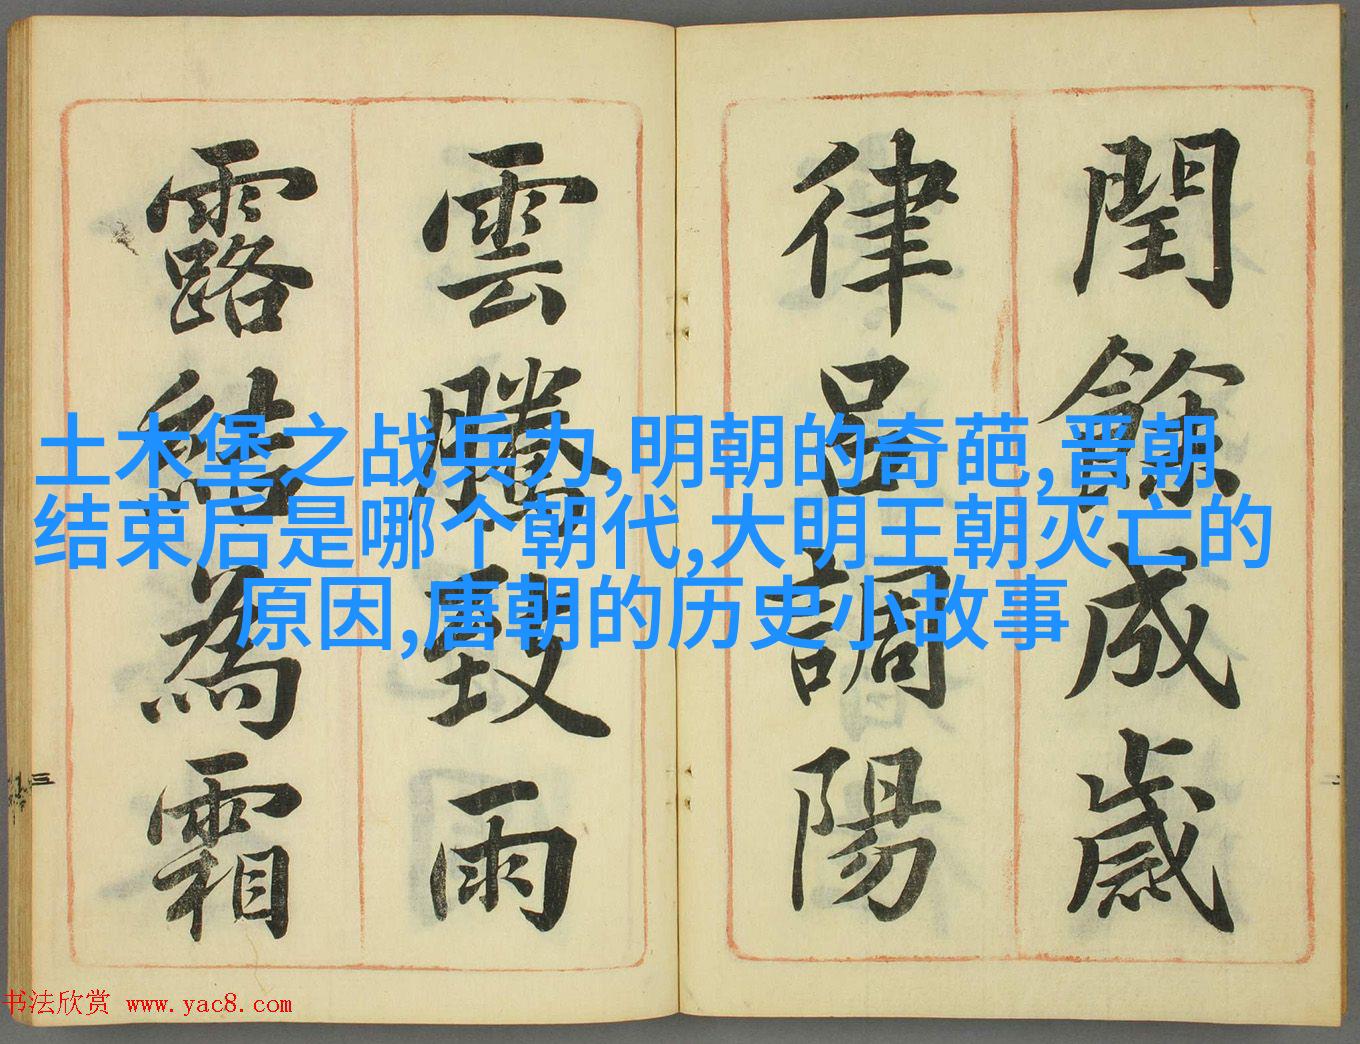 閏餘成歲
律呂調陽
雲騰致雨
露結為霜
土木堡之战兵力,明朝的奇葩,晋朝
结束后是哪个朝代,大明王朝灭亡的
原因,唐朝的历史小故事
三
二
书法欣赏 www.yac8.com